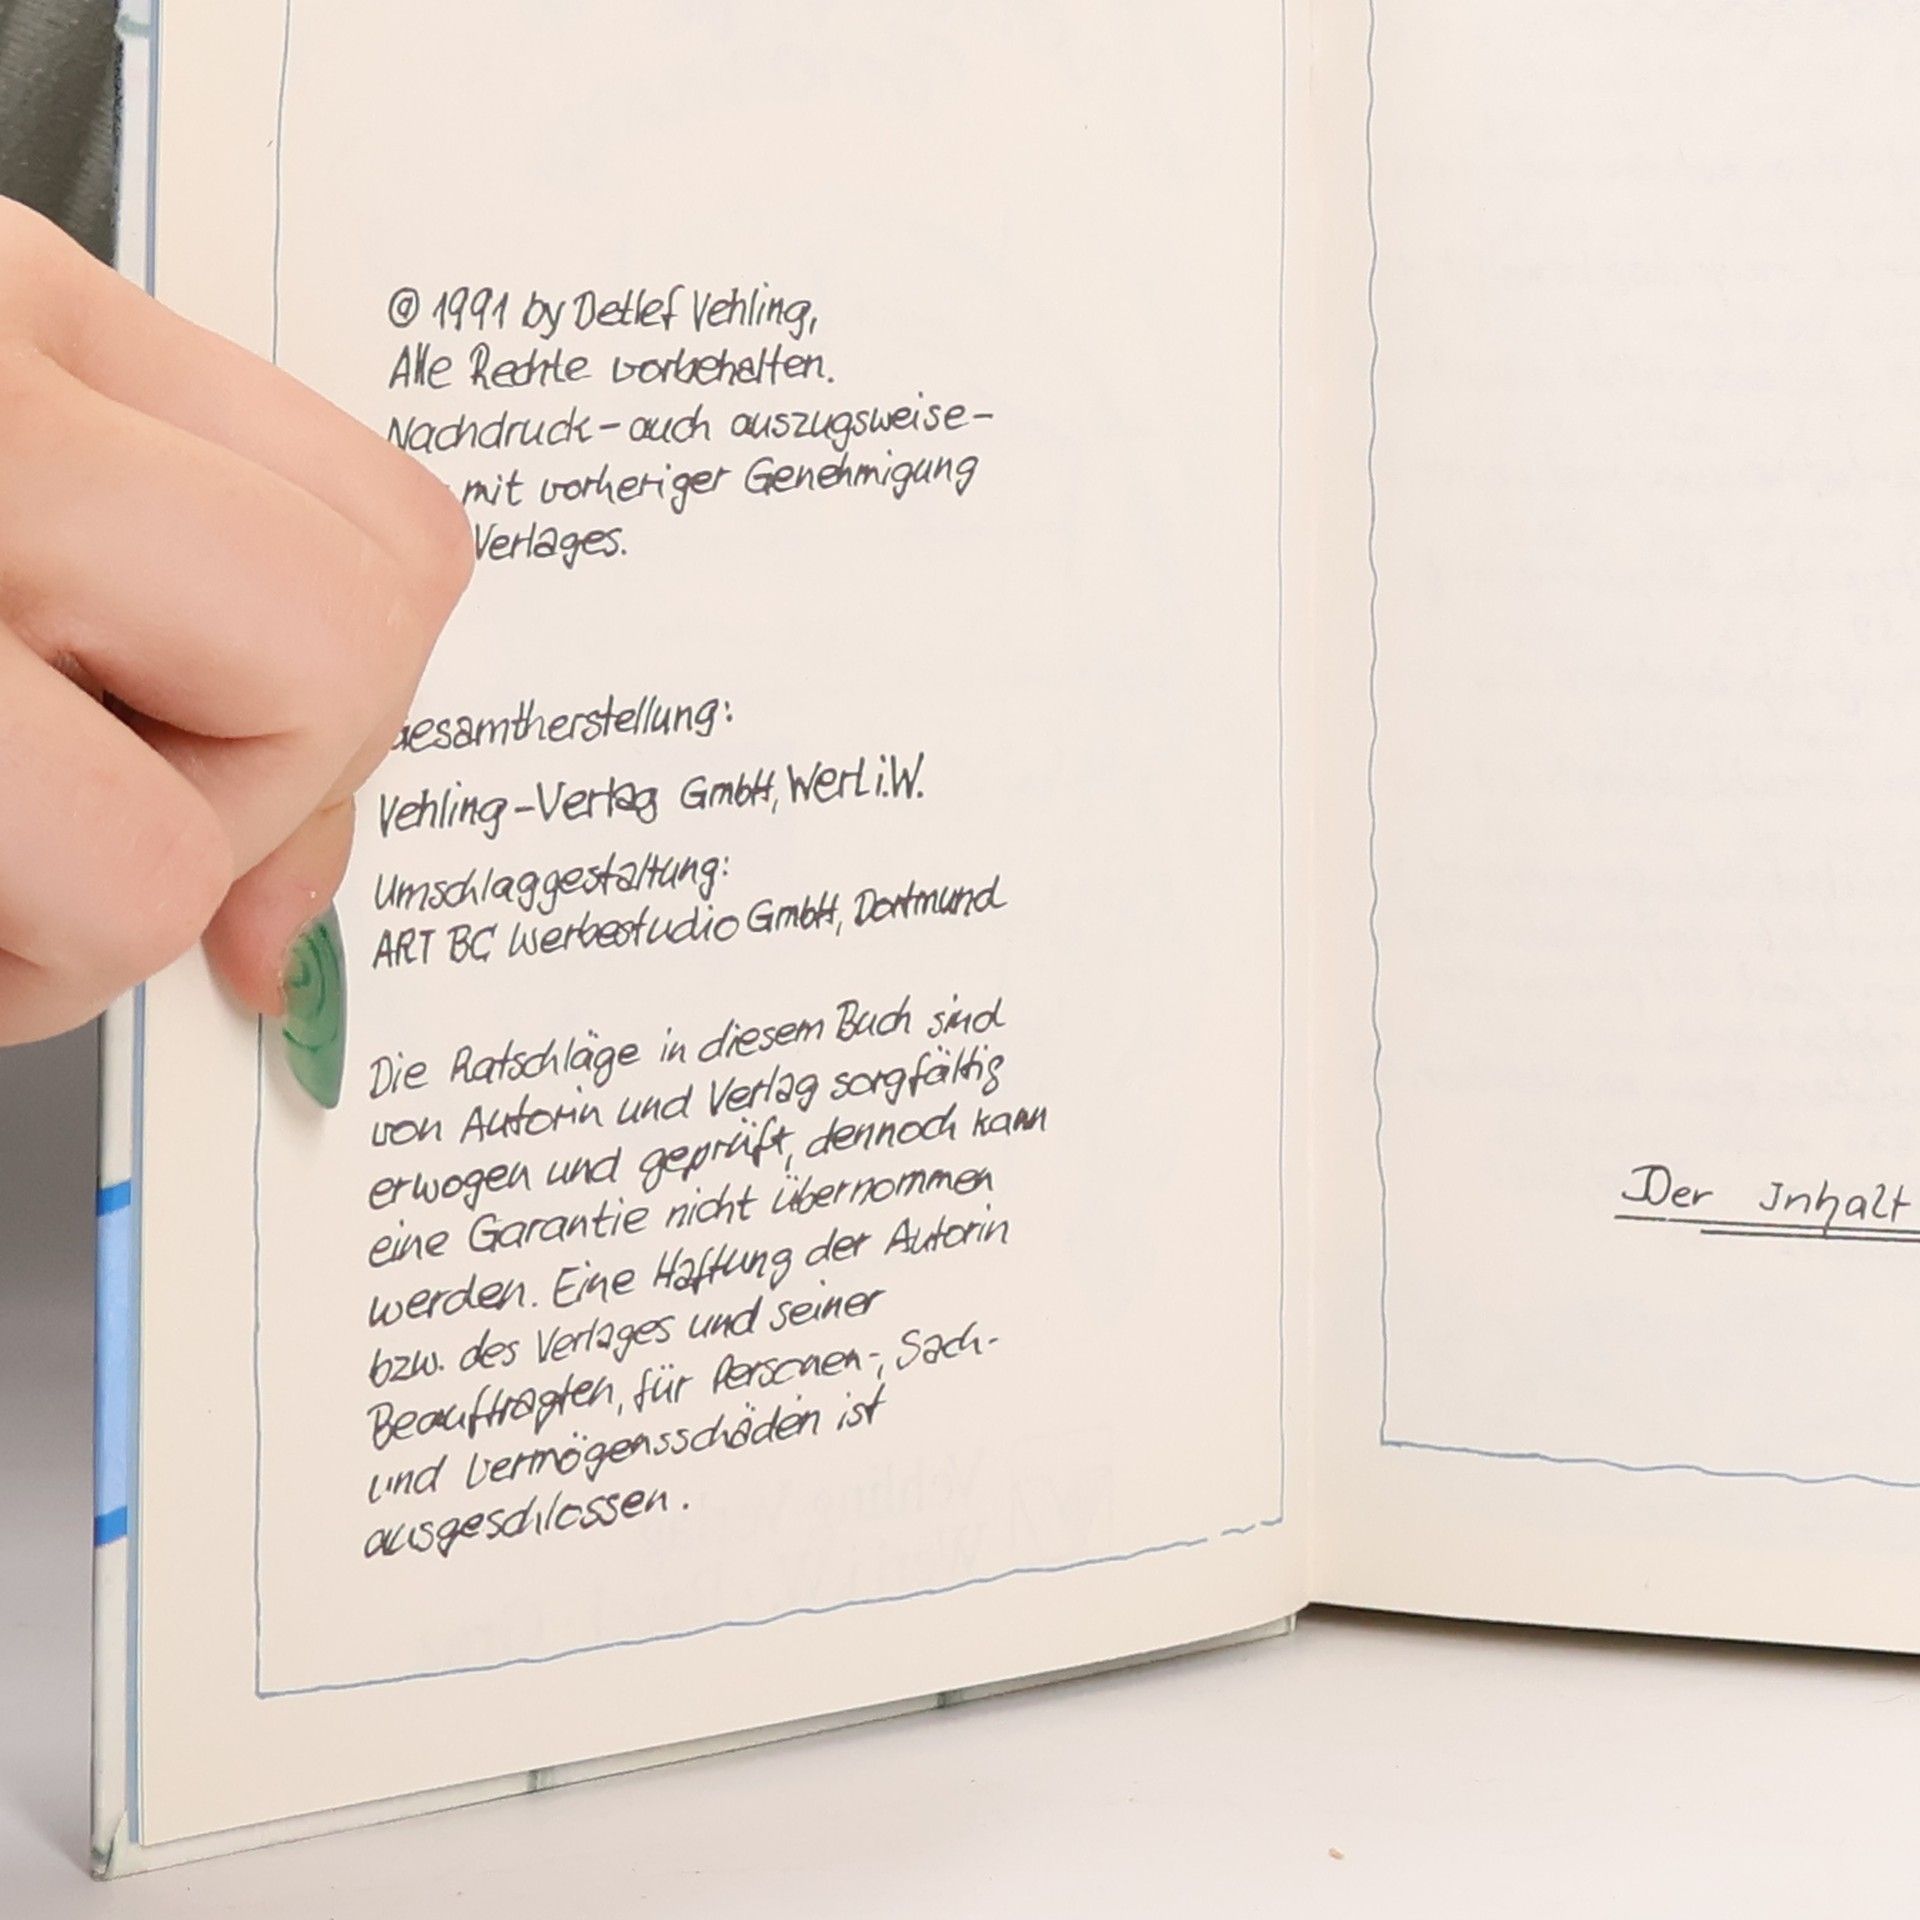 © 1991 by Detlef Vehling,
Alle Rechte vorbehalten.
Nachdruck – auch auszugsweise –
mit vorheriger Genehmigung
Verlages.
Gesamtherstellung:
Vehling-Verlag GmbH, Werl i.W.
Umschlaggestaltung:
ART BC Werbestudio GmbH, Dortmund
Die Ratschläge in diesem Buch sind
von Autorin und Verlag sorgfältig
erwogen und geprüft, dennoch kann
eine Garantie nicht übernommen
werden. Eine Haftung der Autorin
bzw. des Verlages und seiner
Beauftragten, für Personen-, Sach-
und Vermögensschäden ist
ausgeschlossen.
Der Inhalt